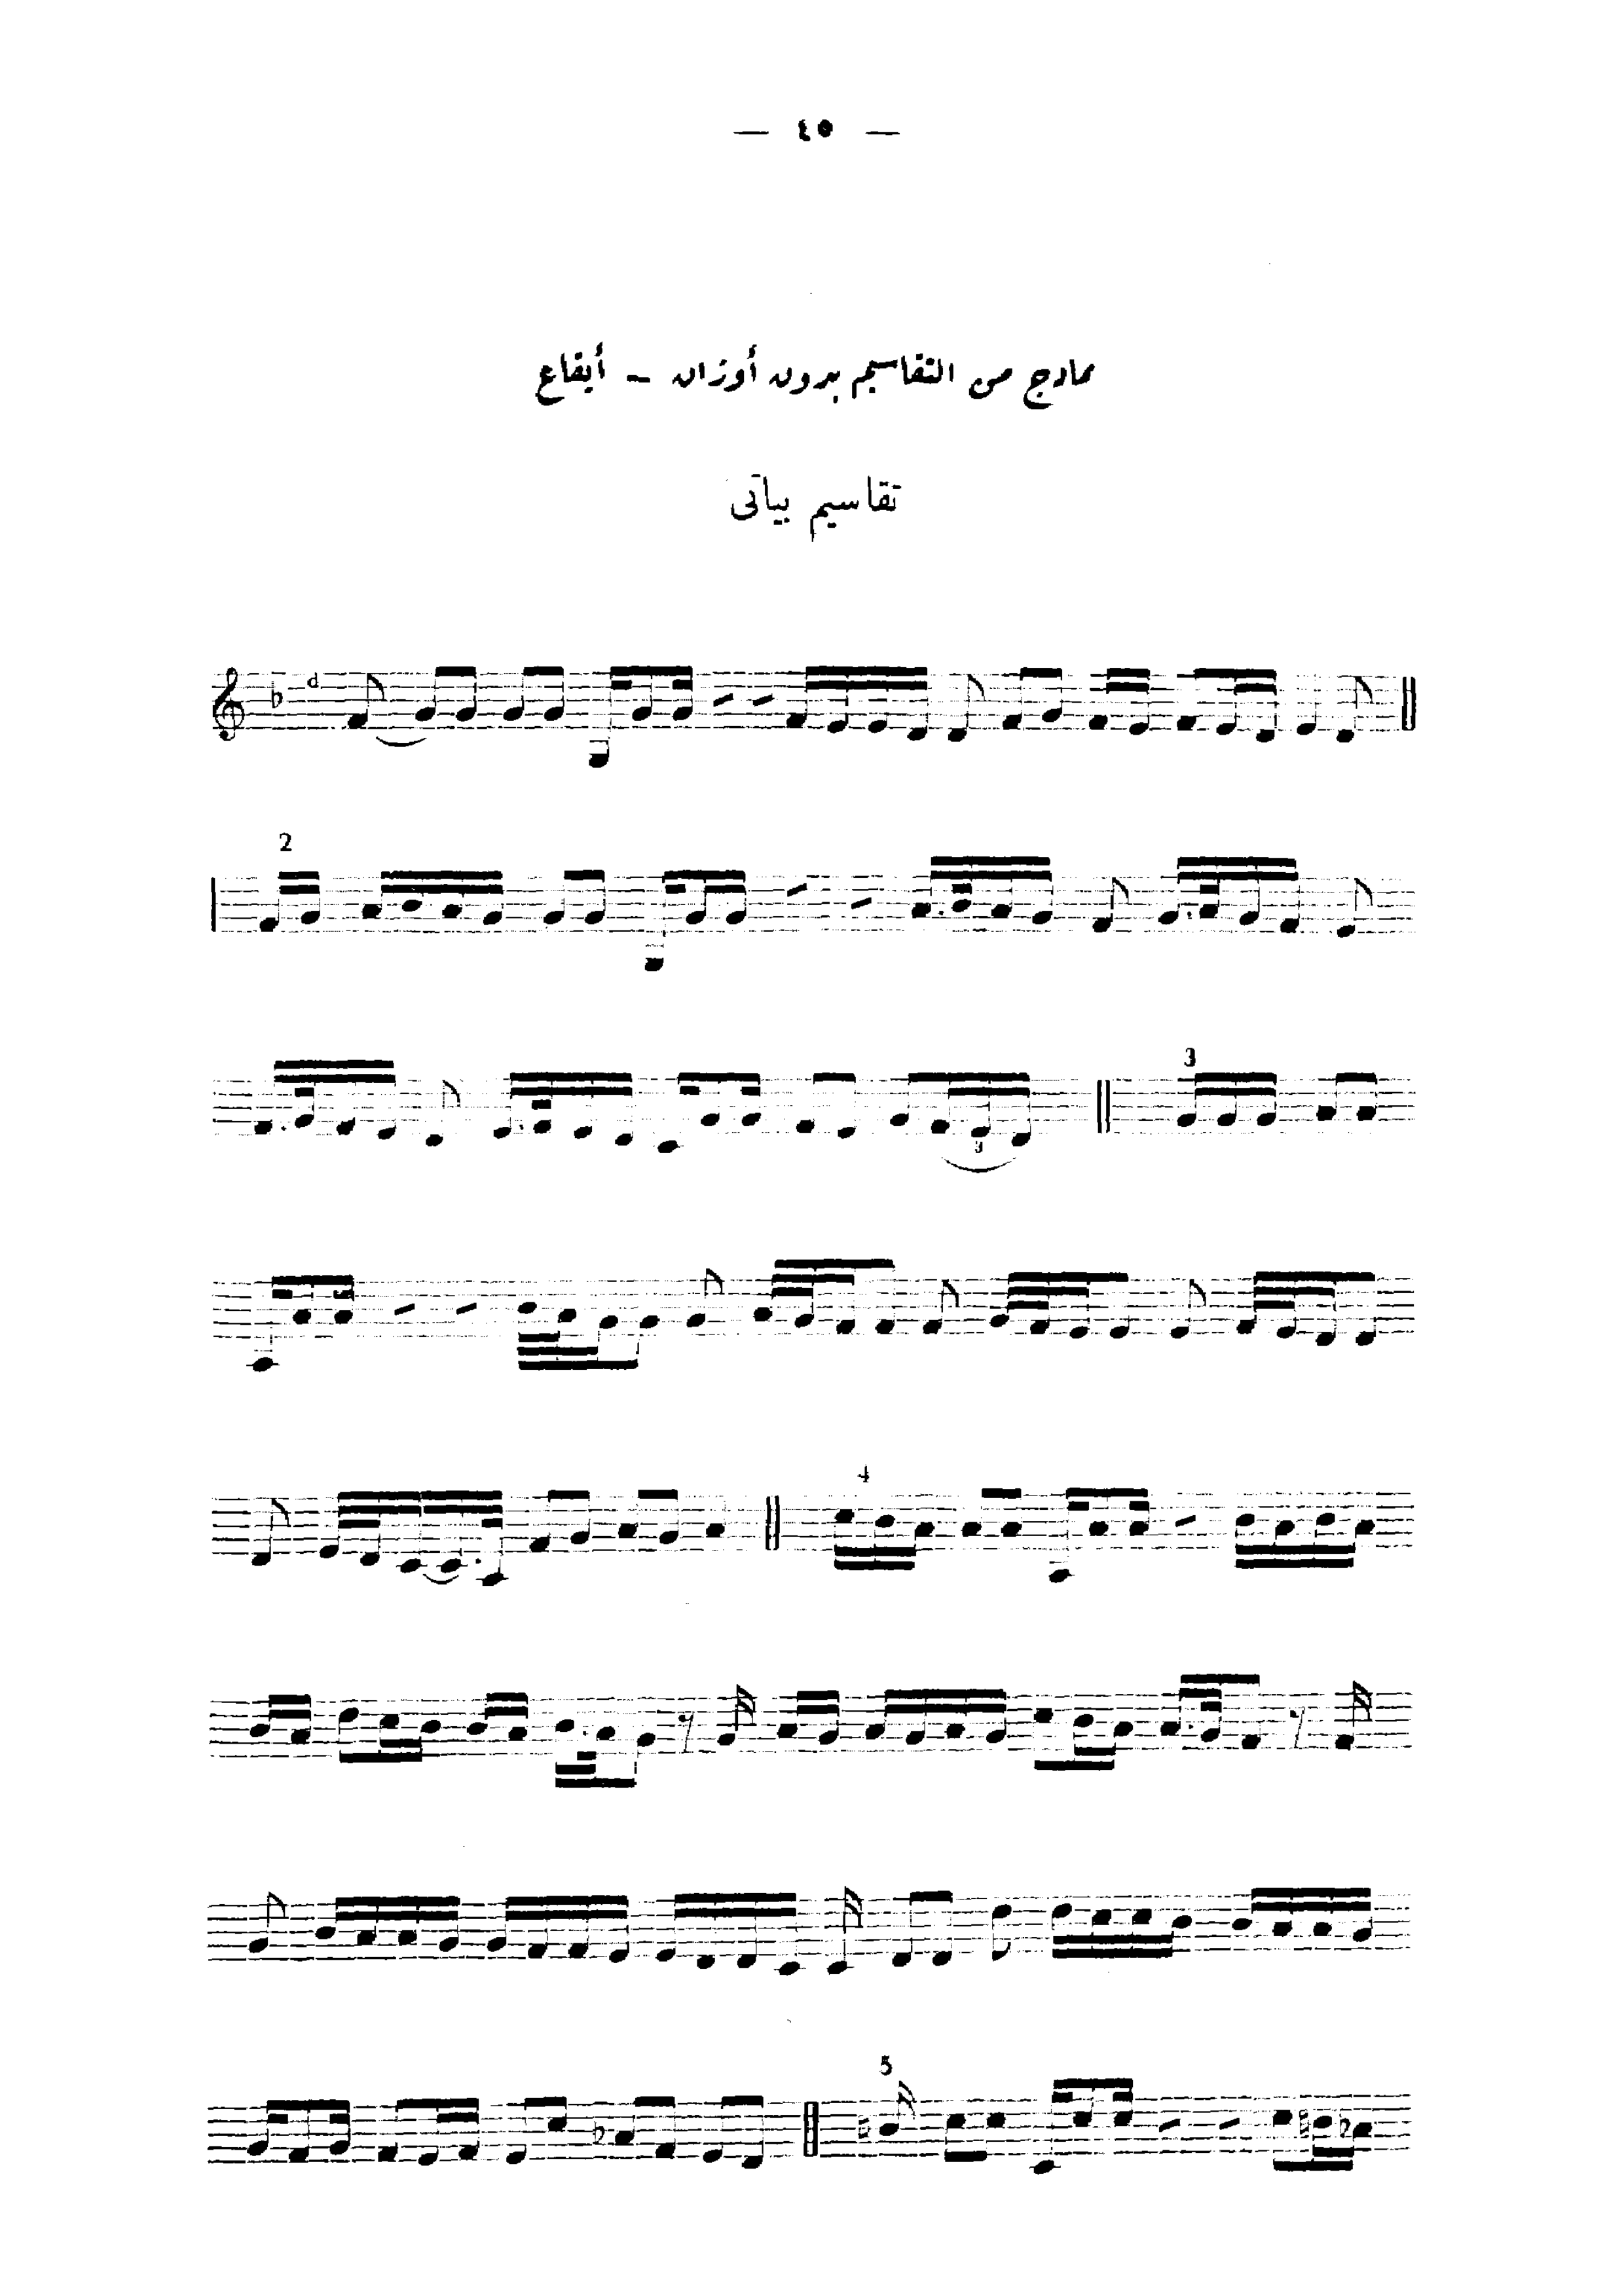 — ٤٥ —
نماذج من التقاسيم بدون أوزان - أيقاع
تقاسيم بياتى
2
3
3
4
5